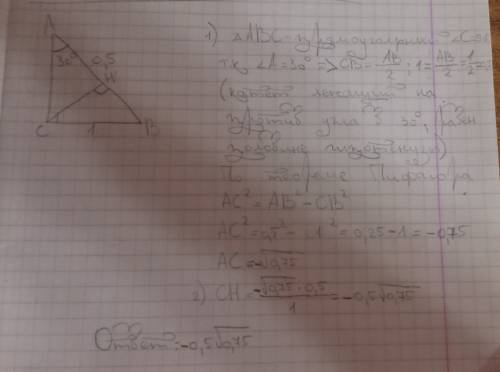 A
30°
0,5
H
C
1
B
1) △ABC - прямоугольный ∠C=
т.к ∠A=30° => CB=AB/2; 1=AB/2=1/2=
(катет лежащий на
против угла в 30°, равен
половине гипотенузы)
По теореме Пифагора
AC²=AB²-CB²
AC²=0,5²-1²=0,25-1=-0,75
AC=-√0,75
2) CH=-√0,75·0,5/1=-0,5√0,75
Ответ:-0,5√0,75